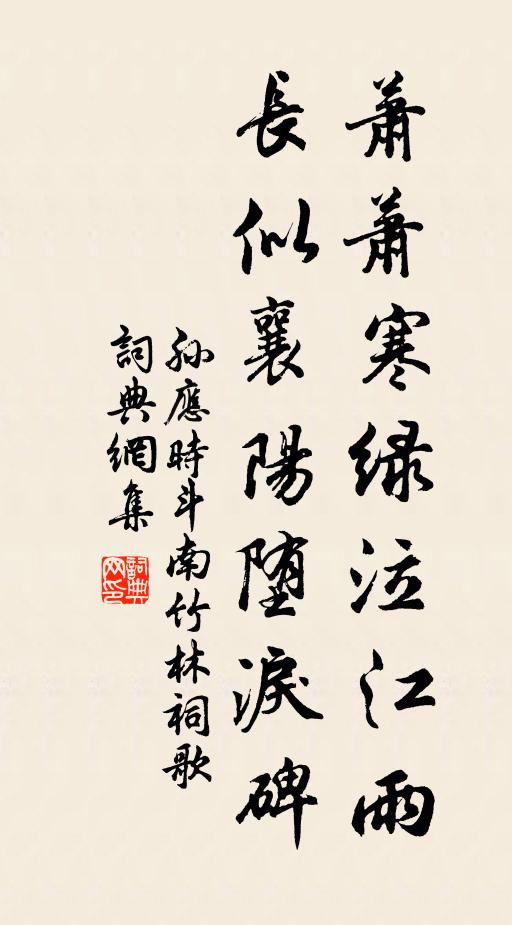 蕭蕭寒緑泣江雨
長似襄陽堕淚碑
孙應時斗南竹林祠歌
詞典網集
詞典网印